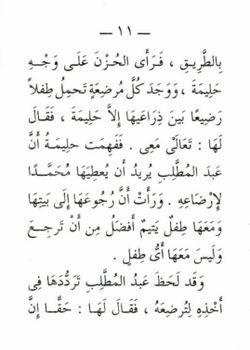 — ١١ —
بِالطَّرِيقِ ، فَرَأَى الحُزْنَ عَلَى وَجْهِ
حَلِيمَةَ ، وَوَجَدَ كُلَّ مُرضِعَةٍ تَحمِلُ طِفلاً
رَضِيعًا بَينَ ذِرَاعَيهَا إِلاَّ حَلِيمَةَ ، فَقَالَ
لَهَا : تَعَالَىْ مَعِى . فَفَهِمَت حليمَةُ أَنَّ
عبدَ المُطَّلِبِ يُرِيدُ أَن يُعطِيَهَا مُحَمَّدًا
لإِرْضَاعِهِ . وَرَأَتْ أَنَّ رُجُوعَهَا إِلَى بَيتِهَا
وَمَعَهَا طِفلٌ يَتيمٌ أَفضَلُ مِن أَنْ تَرجِعَ
وَلَيسَ مَعَهَا أَىُّ طِفلٍ .
وَقَد لَحَظَ عَبدُ المُطَّلِبِ تَرَدُّدَهَا فِى
أَخْذِهِ لِتُرضِعَهُ ، فَقَالَ لَهَا : حَقًّا إِنَّ